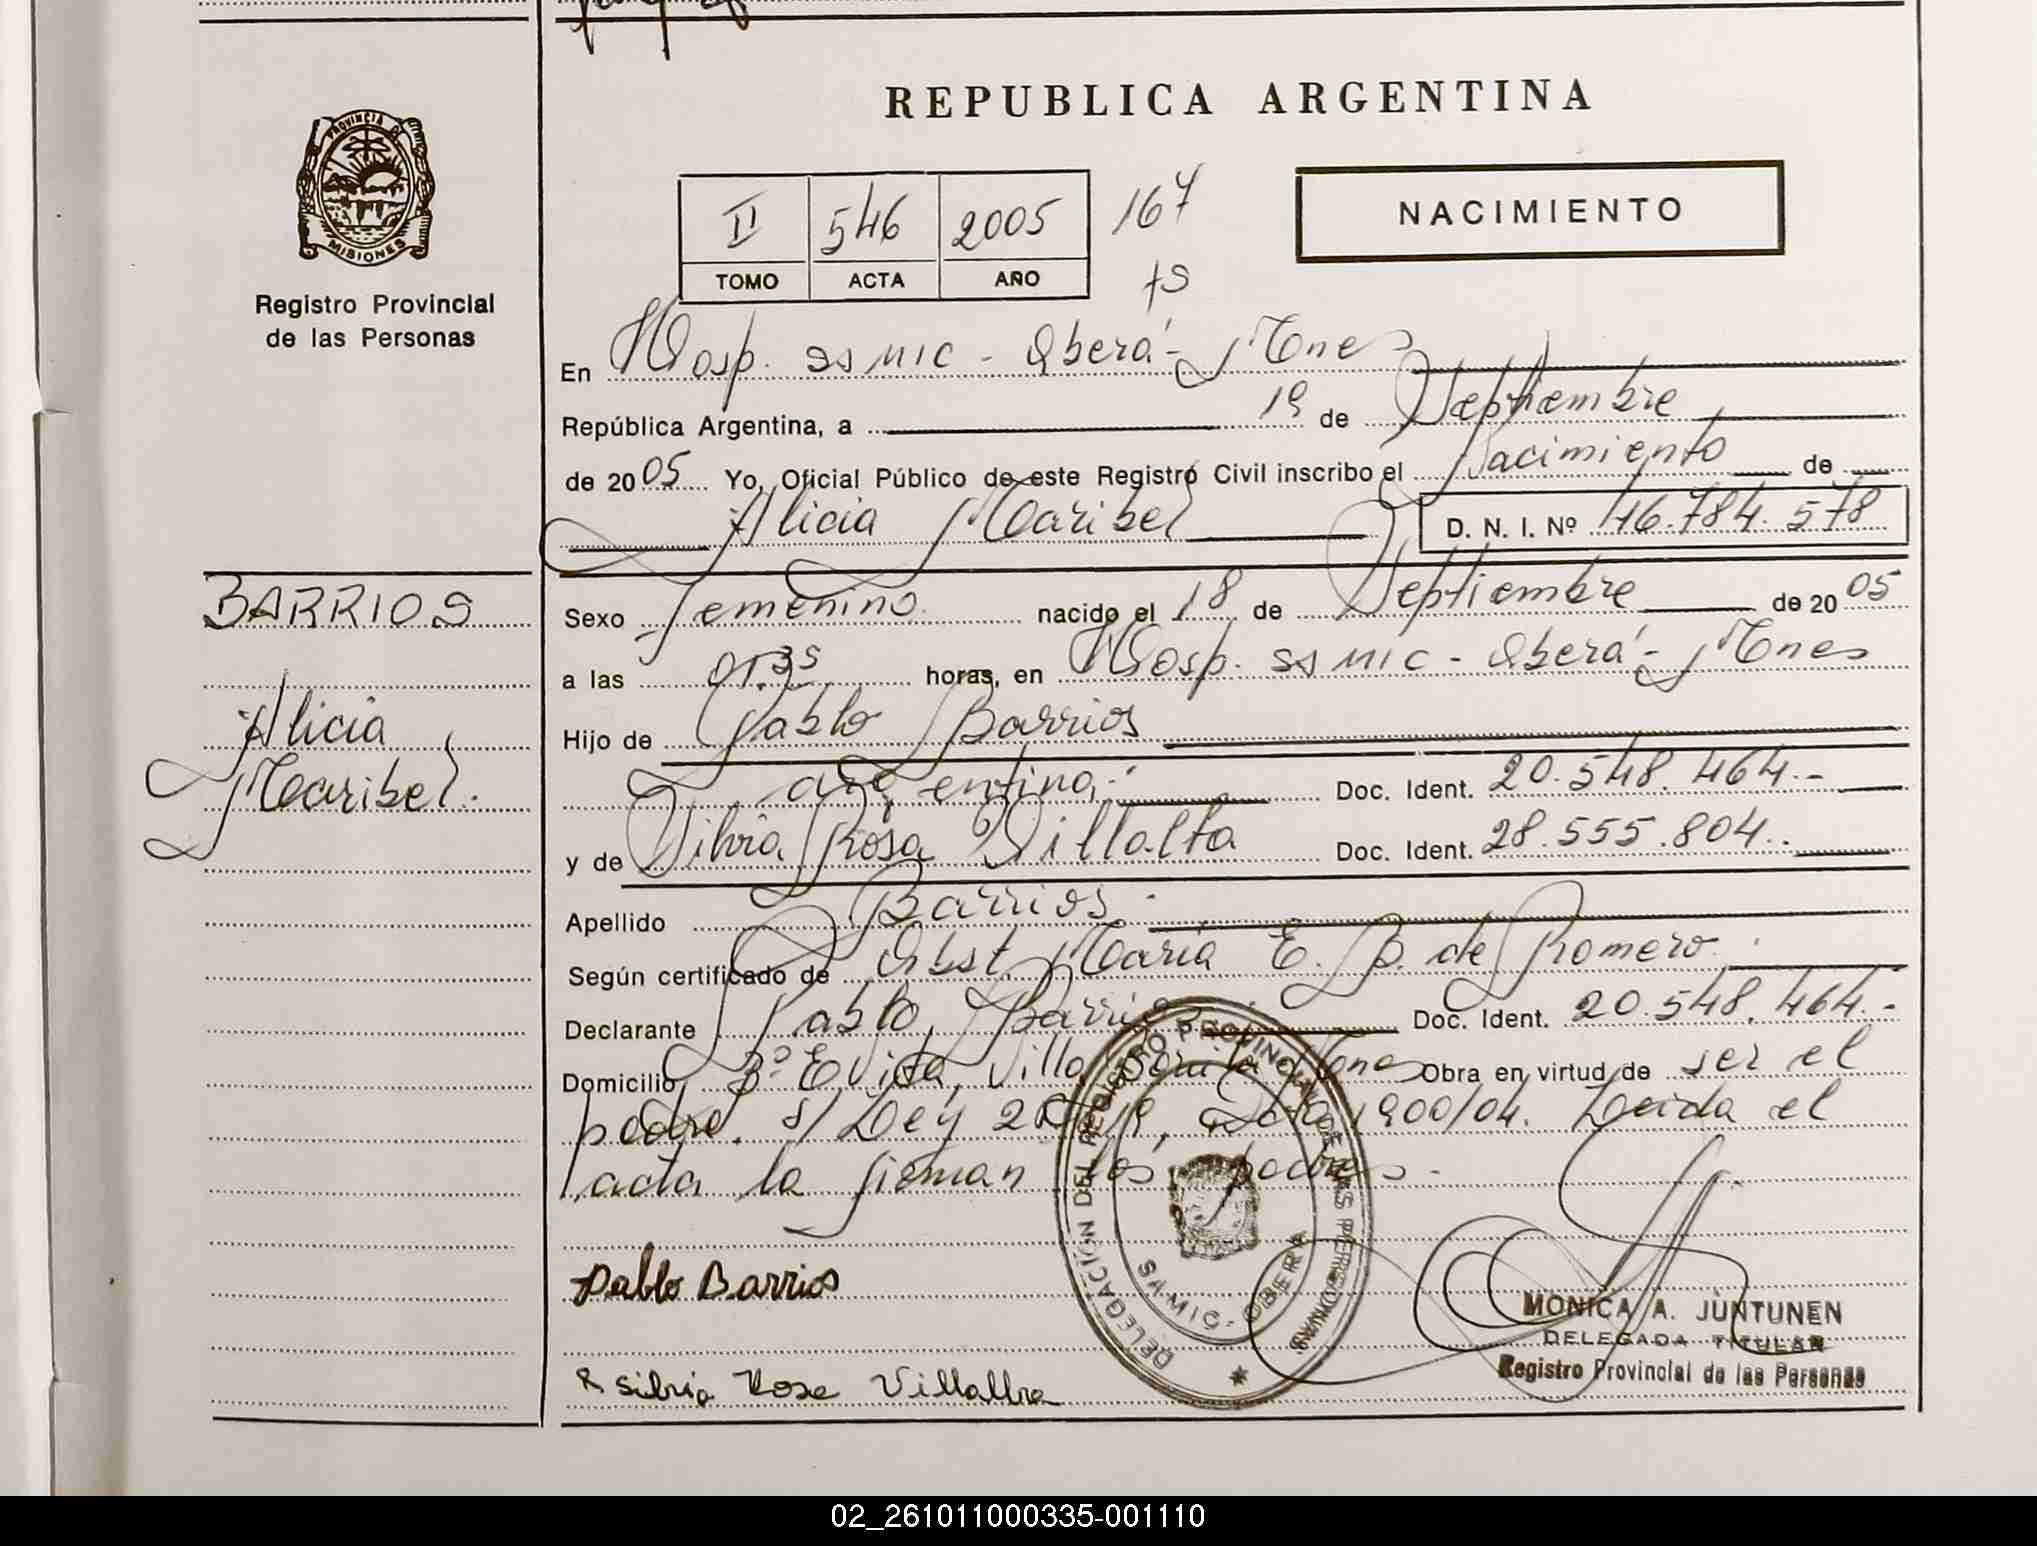 REPUBLICA ARGENTINA
PROVINCIA DE
MISIONES
Registro Provincial
de las Personas
II 546 2005 167
TOMO ACTA AÑO
NACIMIENTO
En Hosp. SSMIC - Oberá - Mnes
República Argentina, a 19 de Septiembre
de 2005 Yo, Oficial Público de este Registro Civil inscribo el Nacimiento de
Alicia Maribel D. N. I. Nº 46.784.578
BARRIOS
Alicia
Maribel.
Sexo femenino. nacido el 18 de Septiembre de 2005
a las 01.35 horas, en Hosp. SSMIC - Oberá - Mnes
Hijo de Pablo Barrios
argentino.- Doc. Ident. 20.548.464.-
y de Silvia Rosa Villalba Doc. Ident. 28.555.804.
Apellido Barrios.
Según certificado de Obst. María E. B. de Romero.
Declarante Pablo Barrios Doc. Ident. 20.548.464.-
Domicilio Bº Evita, Villa Mnes Obra en virtud de ser el
padre. s/ Ley 1900/04. Leida el
acta la firman los padres.-
Pablo Barrios
Silvia Rosa Villalba
DELEGACIÓN DEL REGISTRO PROVINCIAL DE LAS PERSONAS
SAMIC - OBERA
MONICA A. JUNTUNEN
DELEGADA TITULAR
Registro Provincial de las Personas
02_261011000335-001110